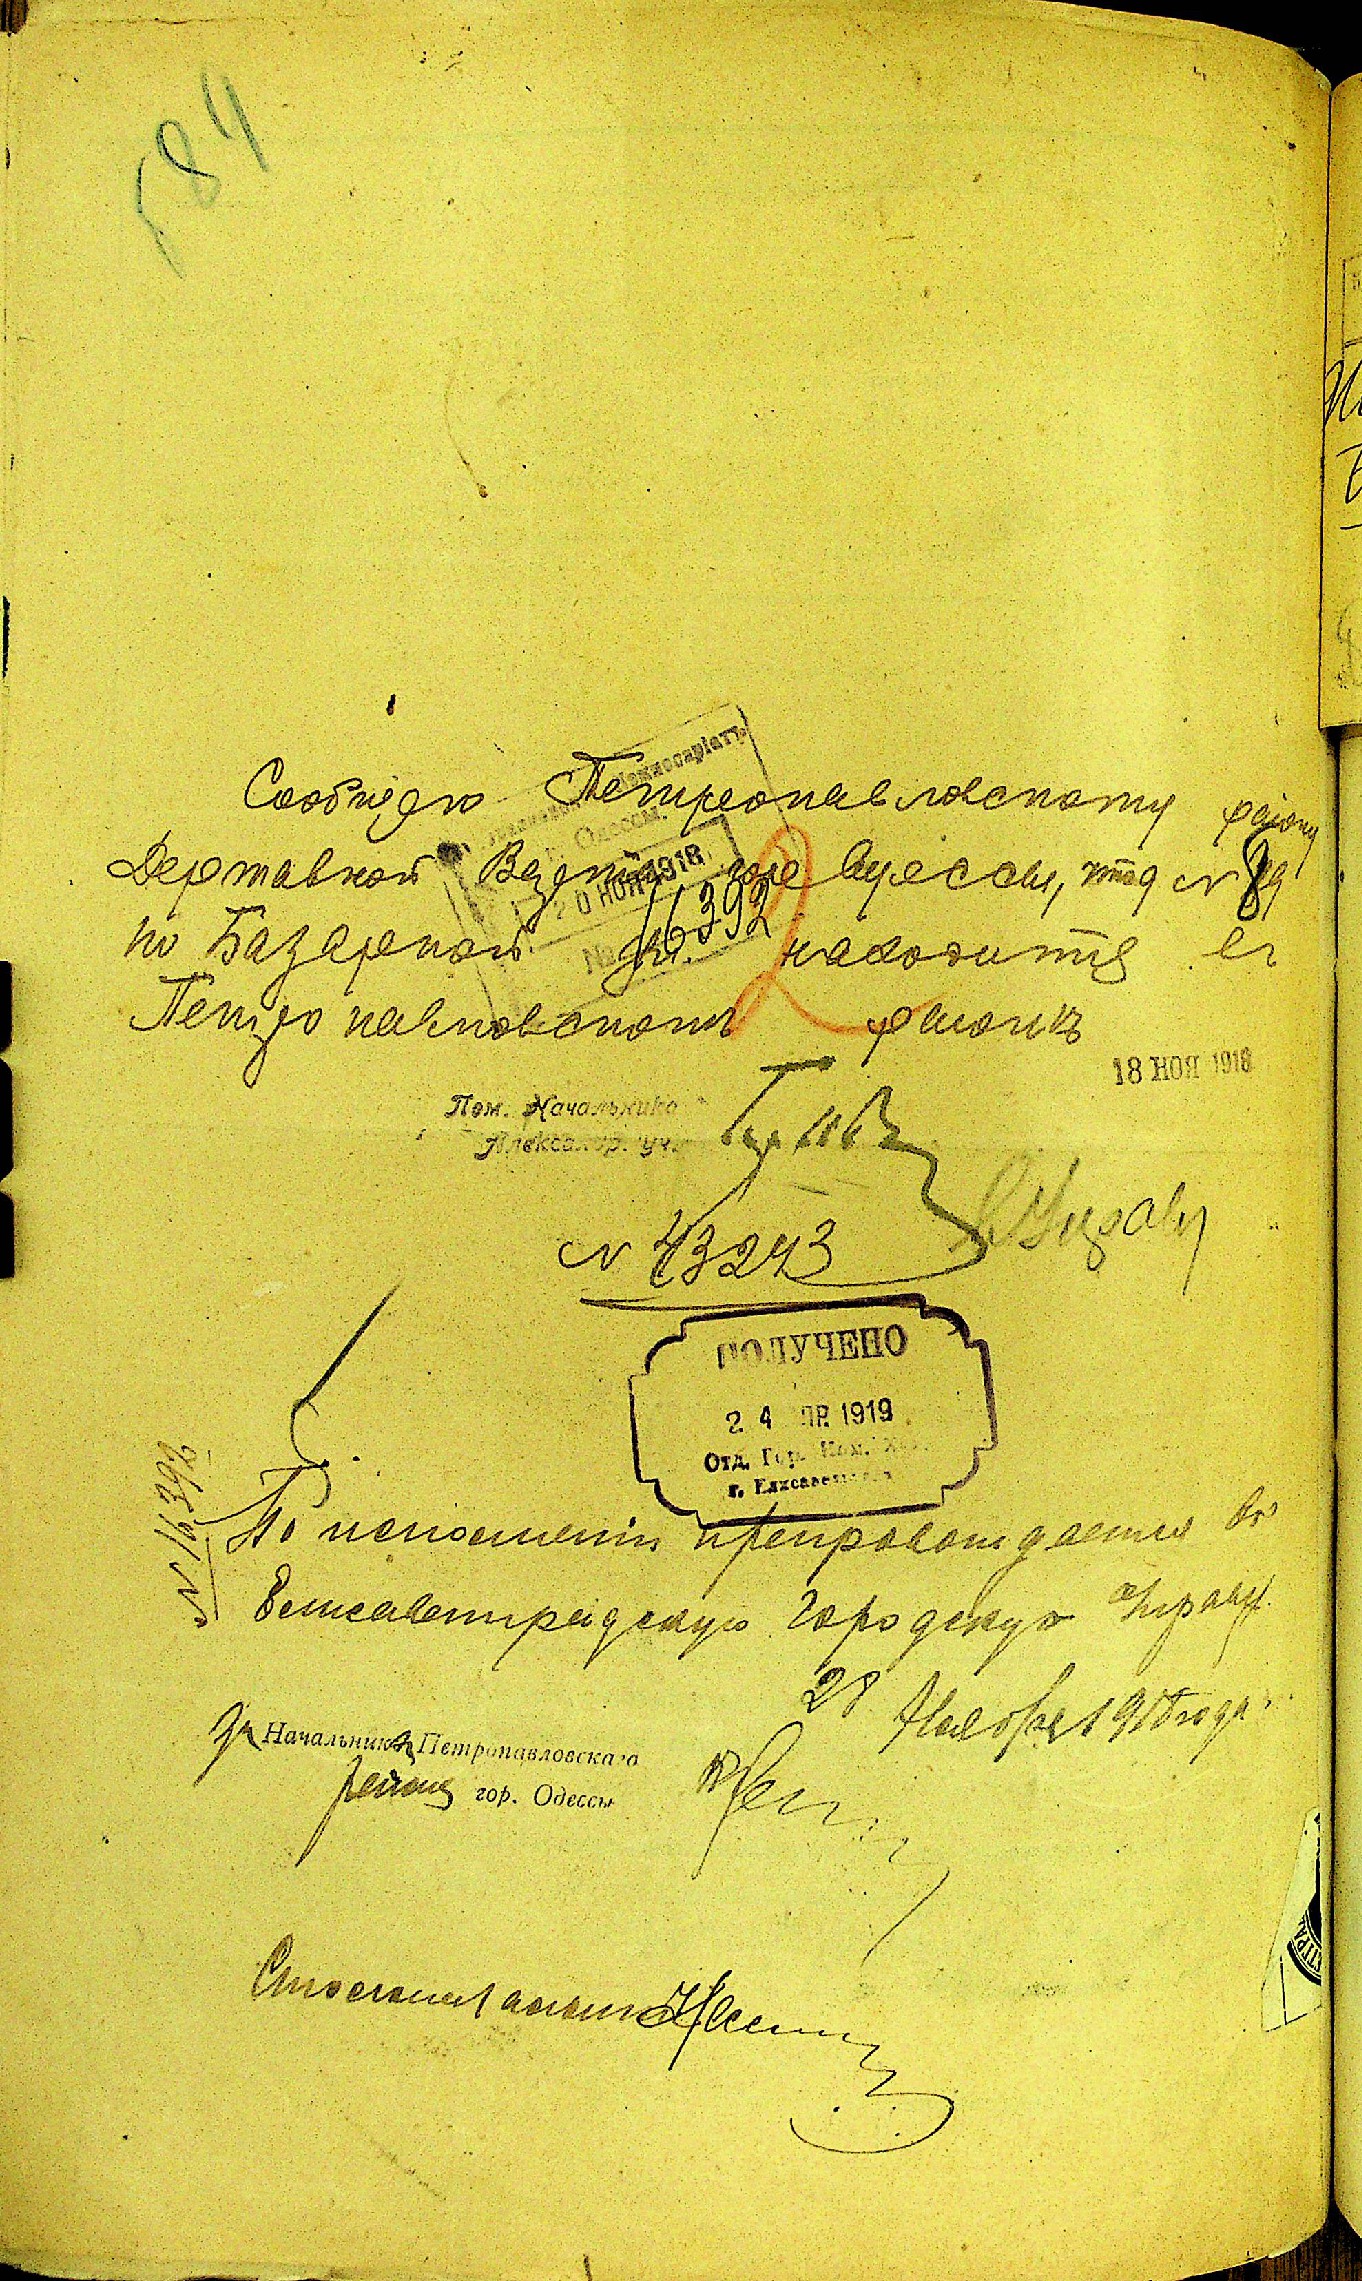 584
Сообщаю Петропавловскому району
Державной Варты гор. Одессы, что д № 89
по Базарной ул. находится въ
Петропавловскомъ районѣ
Комиссаріатъ
г. Одессы
20 НОЯ 1918
№ 16392
2
18 НОЯ 1918
Пом. Начальника
Александр. уч.
№ 43243
ПОЛУЧЕНО
24 1919
Отд. Гор. Ком. Хоз.
г. Елисаветград
№ 16392
По исполненіи препровождается въ
Елисаветградскую Городскую Управу.
28 Ноября 1918 года.
За Начальника Петропавловскаго
района гор. Одессы